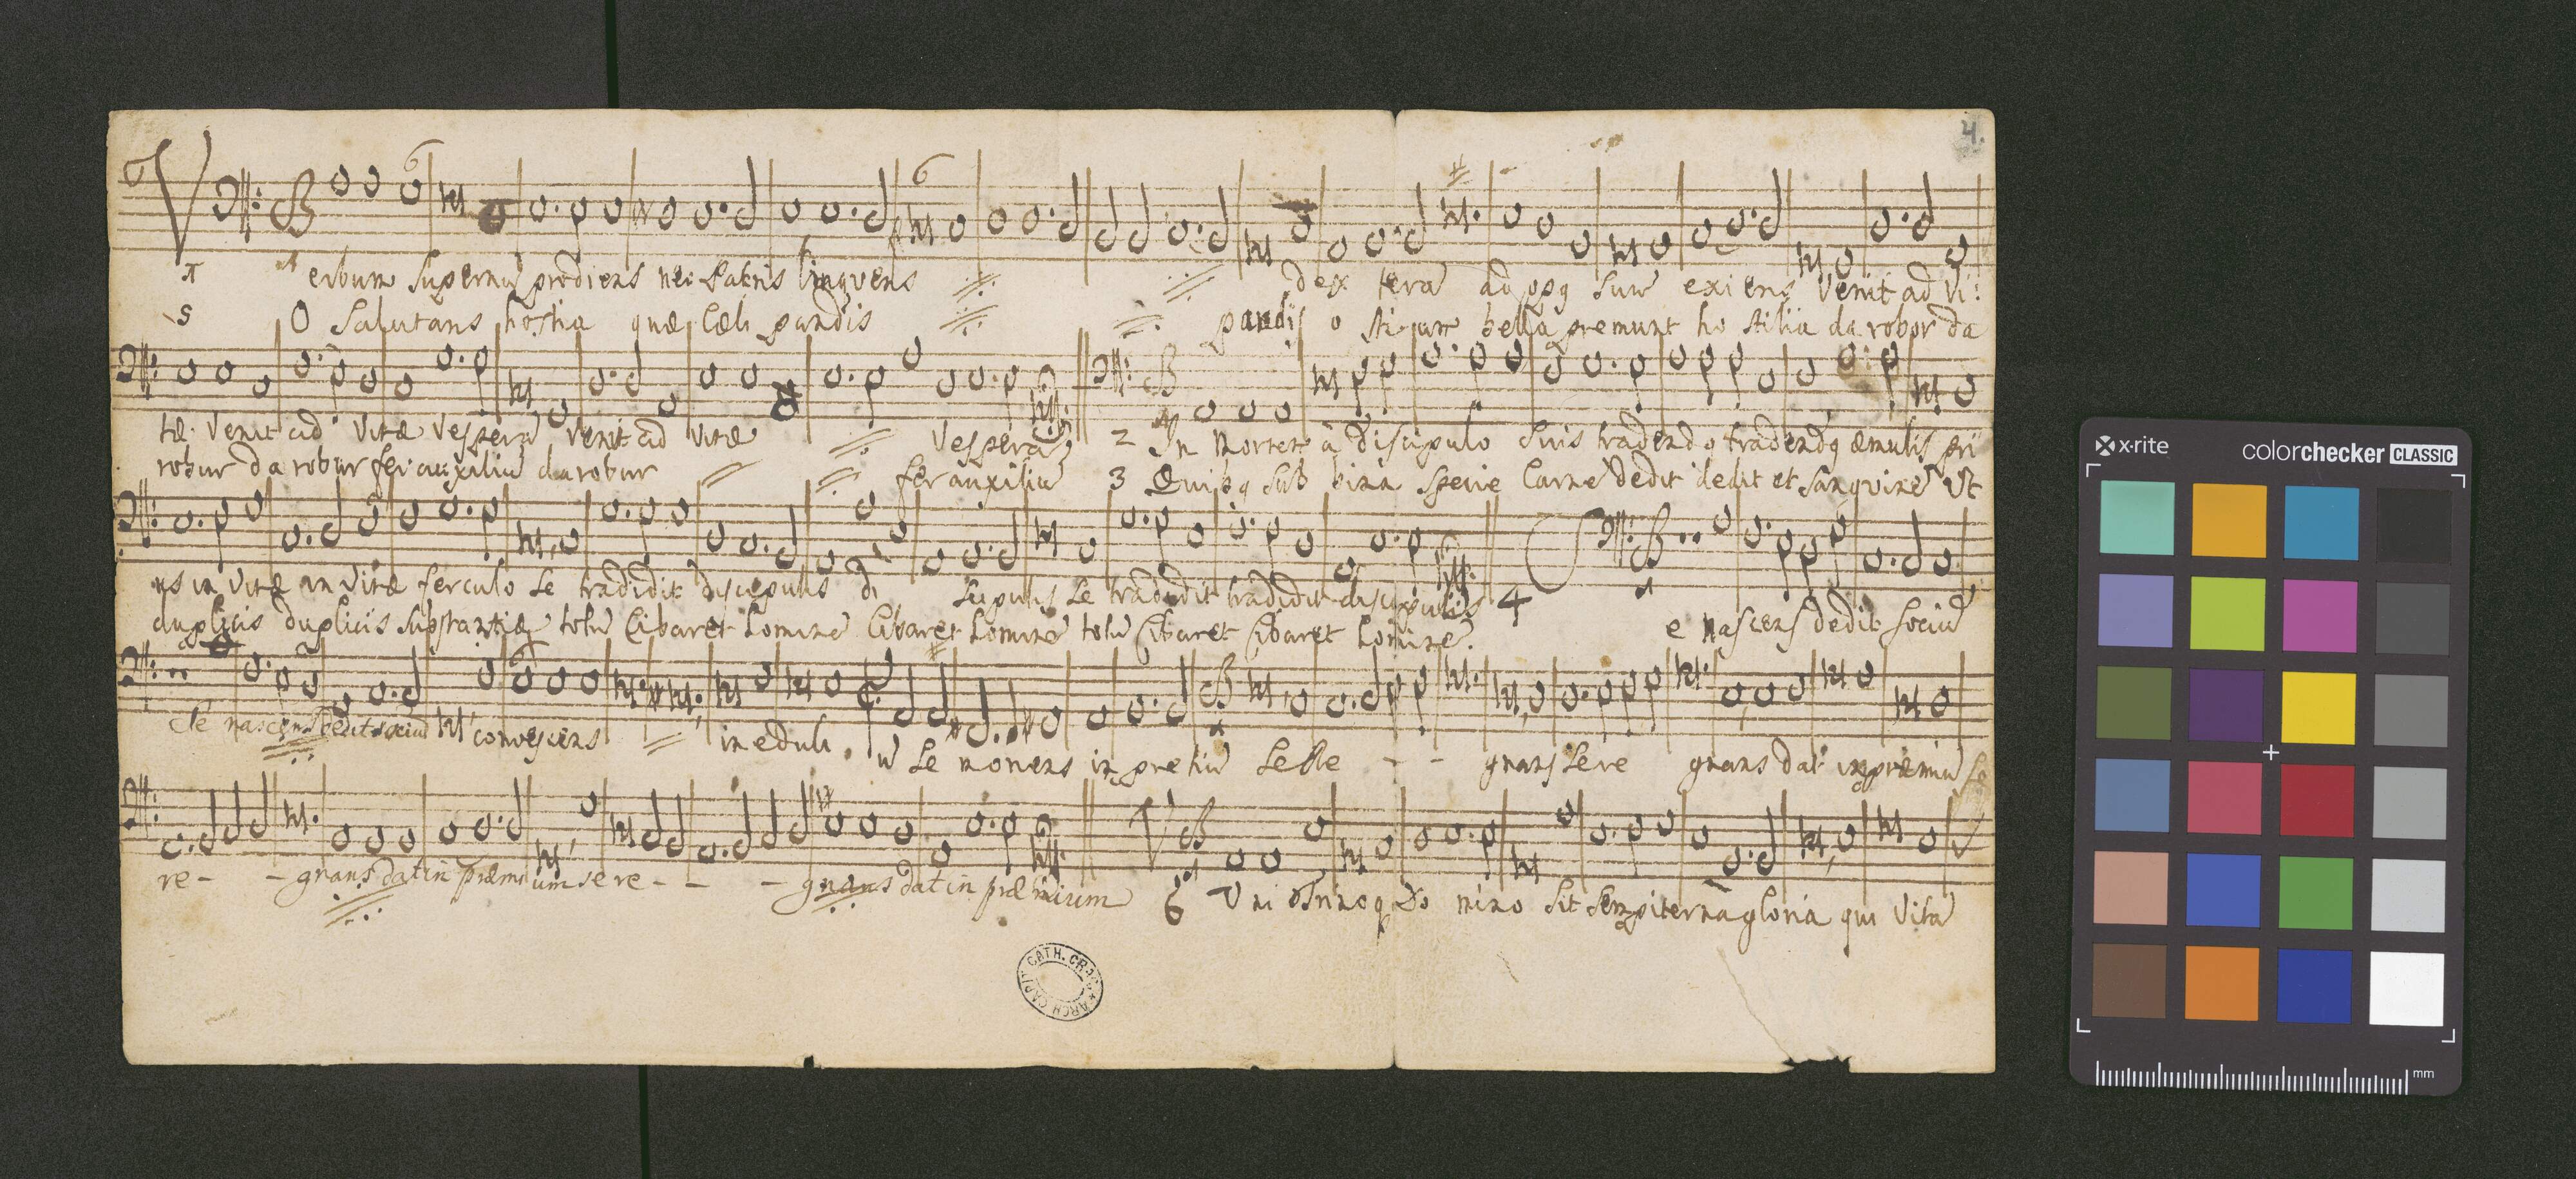 4.
6 6
Verbum Supernū prodiens nec Patris linqvens dextera ad opq Suū exiens Venit ad Vi:
5 O Salutaris hostia quæ Cæli pandis pandis ostium bella premunt hostilia da robor da
tæ. Venit ad Vitæ Vesperā Venit ad Vitæ Vesperā 2 In Mortem à discipulo Suis tradendq tradendq æmulis pri
robur da robur fer auxiliū da robur fer auxiliū 3 Quibq Sub bina Specie Carnē dedit dedit et Sangvinē Ut
us in Vitæ in Vitæ ferculo Se tradidit discipulis di scipulis Se tradidit tradidit discipulis 4
duplicis duplicis Substantiæ totū Cibaret hominē Cibaret hominē totū Cibaret Cibaret hominē.
Se nascens dedit sociū
Se nascens dedit sociū convescens in eduli ū Se moriens in pretiū Se Re - - gnans Se re gnans dat in præmiū Se
re - - gnans dat in præmium se re - - - gnans dat in præmium 6 Uni Trinoq Do mino Sit Sempiterna gloria qui Vitā
ARCH. CAPIT. CATH. CRAC.
x-rite
colorchecker CLASSIC
mm